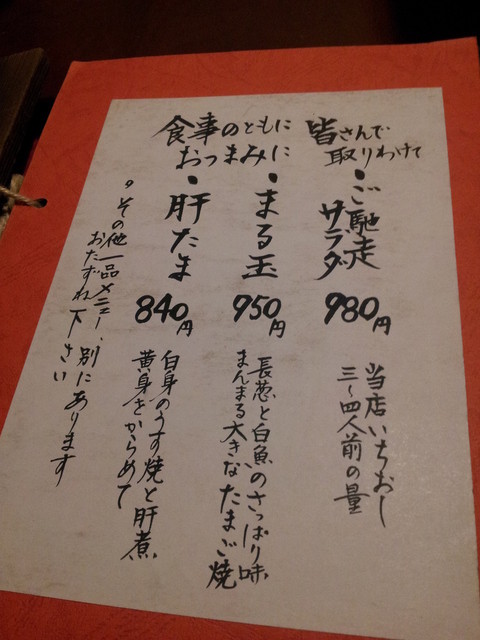 皆さんで
取りわけて
・ご馳走
サラダ
980円
当店いちおし
三〜四人前の量
食事のともに
おつまみに
・まる玉
950円
長葱と白魚のさっぱり味
まんまる大きなたまご焼
・肝たま
840円
白身のうす焼と肝煮
黄身をからめて
・その他一品メニュー、別にあります
おたずね下さい